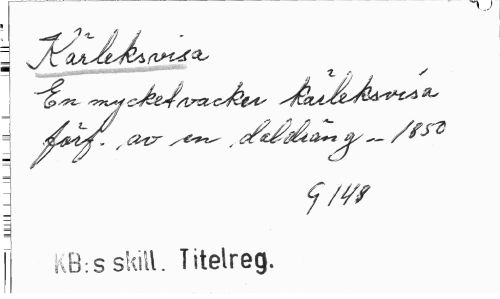 Kärleksvisa
En mycket vacker kärleksvisa
förf. av en daldräng – 1850
G 148
KB:s skill. Titelreg.